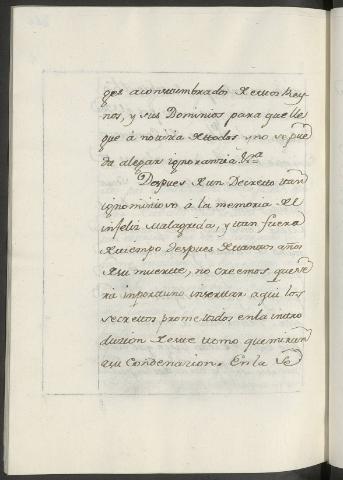 ges acostumbrados de estos Rey-
nos, y sus Dominios para que lle
gue à noticia de todos y no se pue
da alegar ignorancia &ra
Despues de un Decreto tan
ignominioso à la memoria del
infeliz Malagrida, y tan fuera
de tiempo despues de tantos años
de su muerte, no creemos que se
rà importuno insertar aqui los
secretos prometidos en la intro
duccion de este tomo que miran
a su Condenacion. En la Se